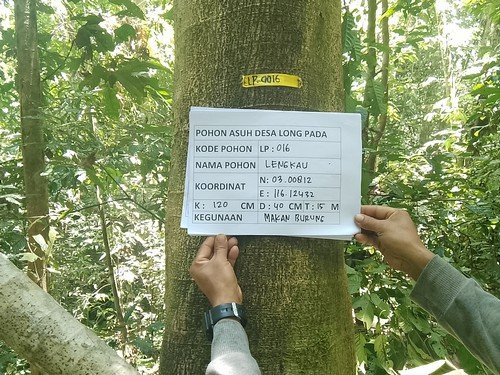 LP-0016
POHON ASUH DESA LONG PADA
KODE POHON LP : 016
NAMA POHON LENGKAU
KOORDINAT N: 03.00812
E: 116.12432
K : 120 CM D : 40 CM T : 15 M
KEGUNAAN MAKAN BURUNG